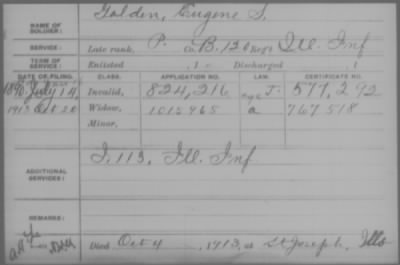 NAME OF SOLDIER: Golden, Eugene S.
SERVICE: Late rank, P. Co. B, 120 Reg't Ill. Inf
TERM OF SERVICE: Enlisted , 1 Discharged , 1
DATE OF FILING. CLASS. APPLICATION NO. LAW. CERTIFICATE NO.
1890 July 14 Invalid, 824,216 J. 577,292
1913 Oct 20 Widow, 1015965 a 767518
Minor,
ADDITIONAL SERVICES: I. 113, Ill. Inf.
REMARKS:
Died Oct 4, 1913, at St Joseph, Ills